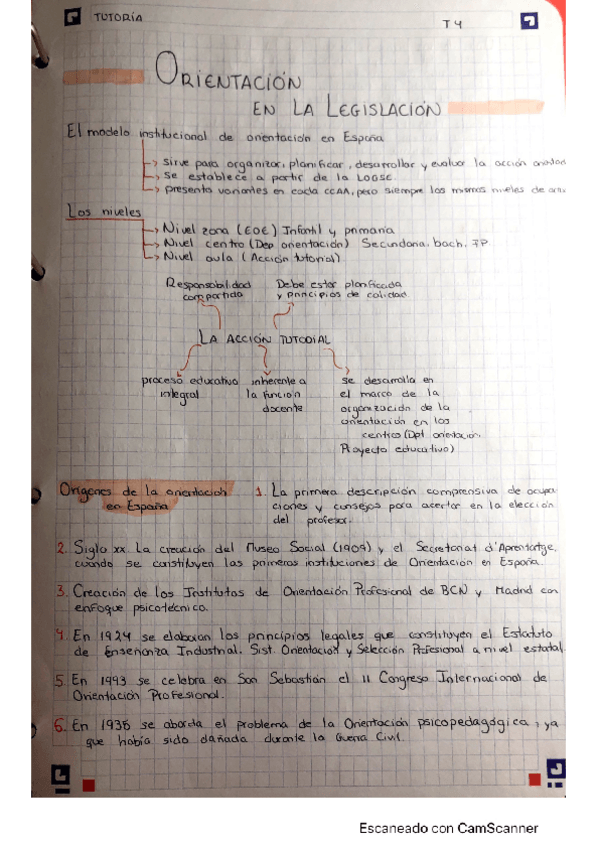 TUTORÍA
T4
ORIENTACIÓN
EN LA LEGISLACIÓN
El modelo institucional de orientación en España
sirve para organizar, planificar, desarrollar y evaluar la acción
se establece a partir de la LOGSE.
presenta variantes en cada CCAA, pero siempre los mismos niveles de
Los niveles
Nivel zona (EOE) Infantil y primaria
Nivel centro (Dep orientación) Secundaria, bach, FP
Nivel aula (Acción tutorial)
Responsabilidad compartida
Debe estar planificada y principios de calidad.
LA ACCIÓN TUTORIAL
proceso educativo integral
inherente a la función docente
se desarrolla en
el marco de la
organización de la
orientación en los
centros (Dpt orientación,
Proyecto educativo)
Orígenes de la orientación
en España
1. La primera descripción comprensiva de ocupa-
ciones y consejos para acertar en la elección
del profesor.
2. Siglo XX. La creación del Museo Social (1909) y el Secretariat d'Aprentatge,
cuando se constituyen las primeras instituciones de Orientación en España.
3. Creación de los Institutos de Orientación Profesional de BCN y Madrid con
enfoque psicotécnico.
4. En 1924 se elaboran los principios legales que constituyen el Estatuto
de Enseñanza Industrial. Sist. Orientación y Selección Profesional a nivel estatal.
5. En 1993 se celebra en San Sebastián el II Congreso Internacional de
Orientación Profesional.
6. En 1936 se aborda el problema de la Orientación psicopedagógica, ya
que había sido dañada durante la Guerra Civil.
Escaneado con CamScanner